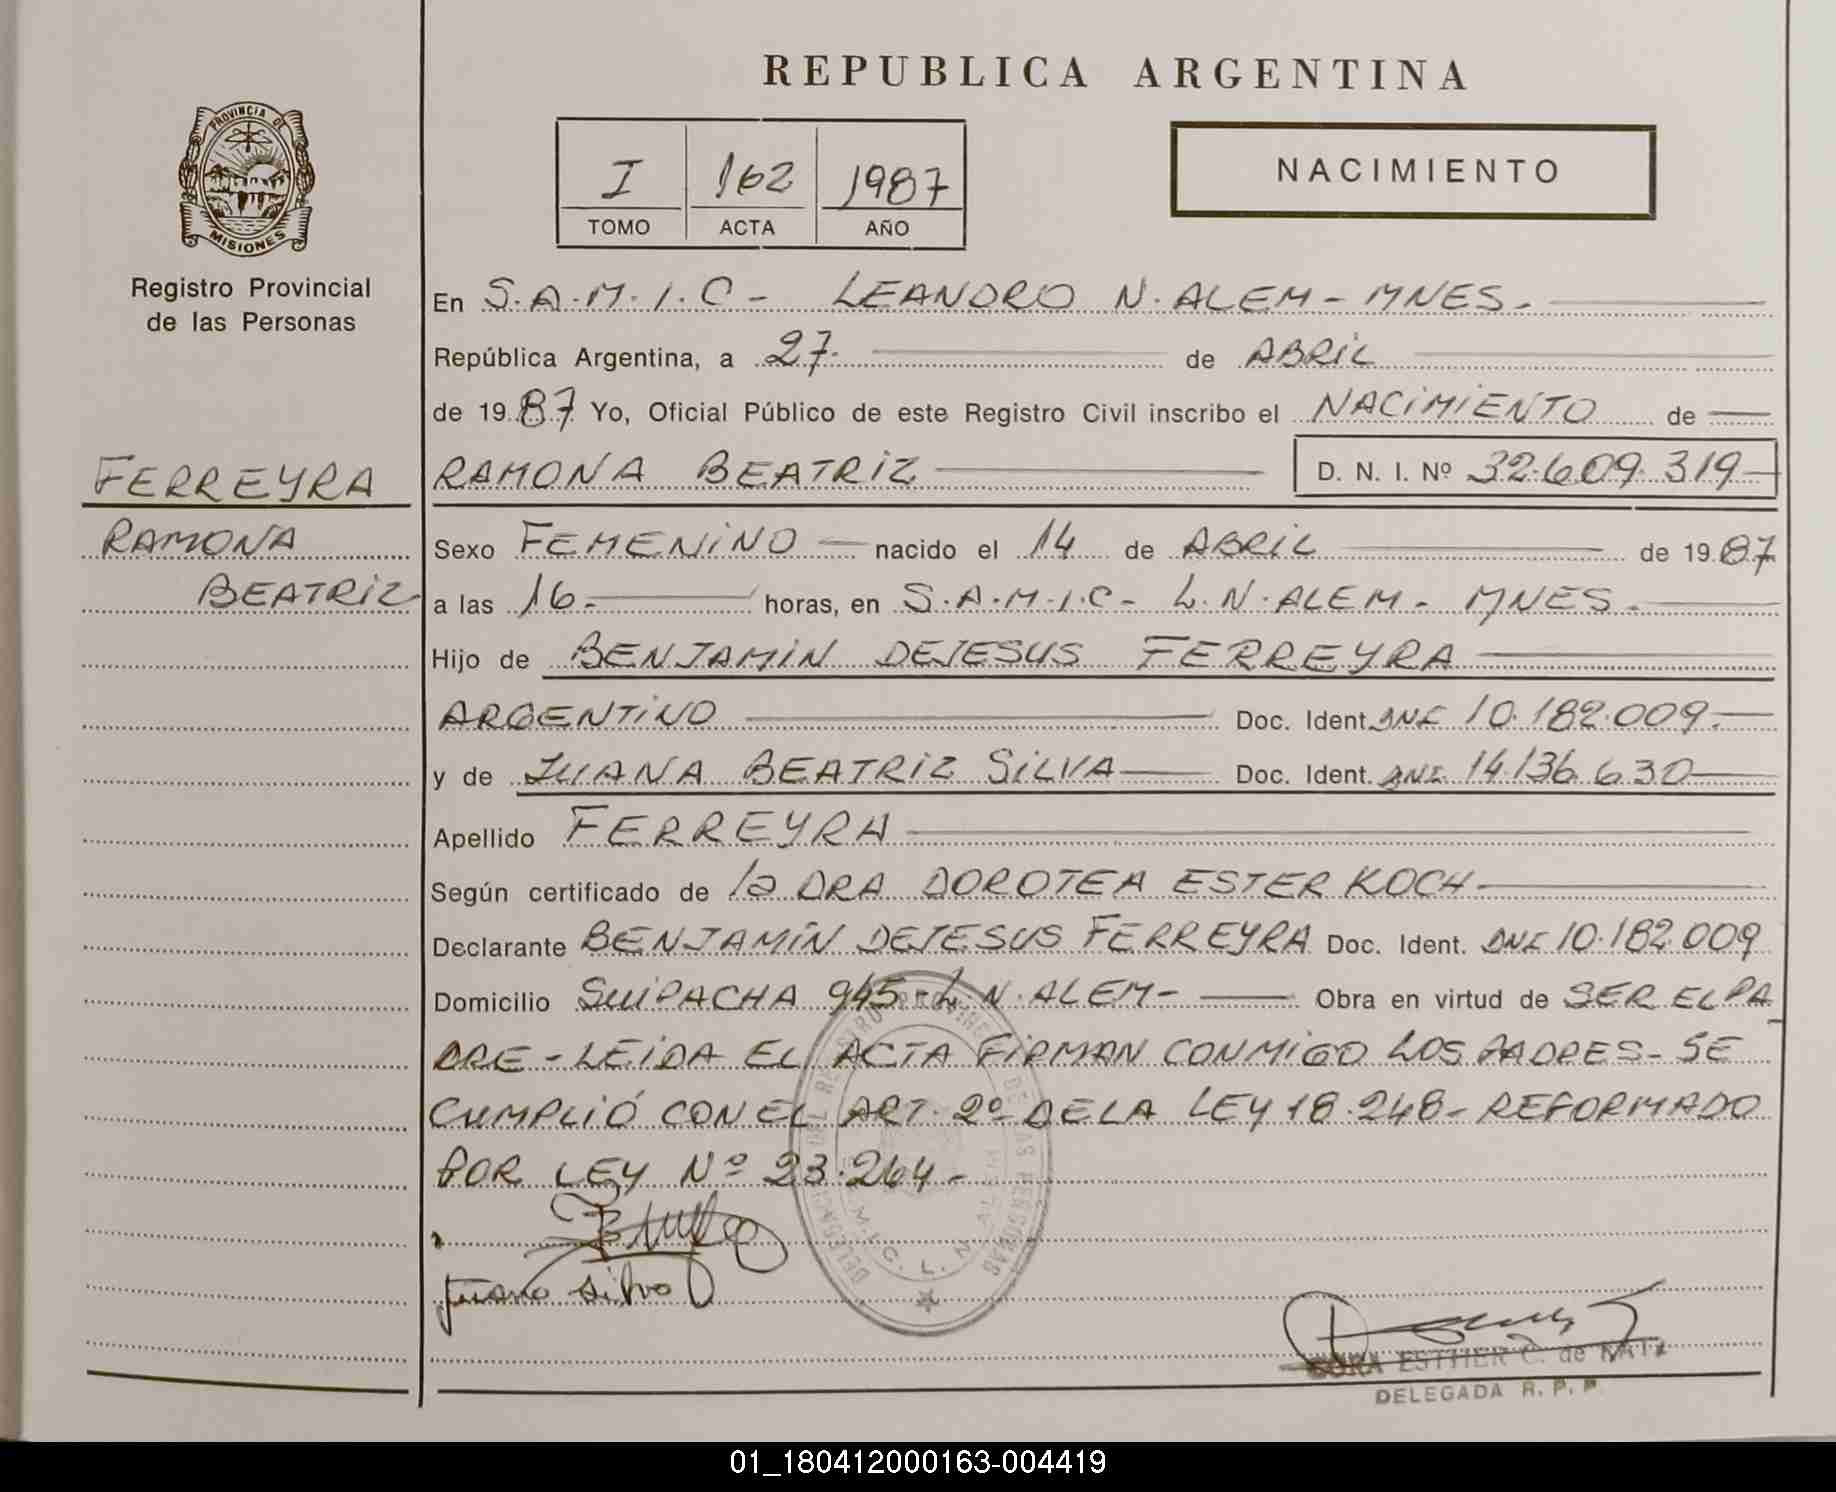 REPUBLICA ARGENTINA
PROVINCIA D
MISIONES
Registro Provincial
de las Personas
I 162 1987
TOMO ACTA AÑO
NACIMIENTO
En S.A.M.I.C - LEANDRO N. ALEM - MNES.
República Argentina, a 27. de ABRIL
de 1987 Yo, Oficial Público de este Registro Civil inscribo el NACIMIENTO de
FERREYRA
RAMONA BEATRIZ D. N. I. Nº 32.609.319
RAMONA
Sexo FEMENINO nacido el 14 de ABRIL de 1987
BEATRIZ
a las 16. horas, en S.A.M.I.C - L.N. ALEM - MNES.
Hijo de BENJAMIN DEJESUS FERREYRA
ARGENTINO Doc. Ident. DNI 10.182.009.
y de JUANA BEATRIZ SILVA Doc. Ident. DNI 14.136.630
Apellido FERREYRA
Según certificado de la DRA DOROTEA ESTER KOCH
Declarante BENJAMIN DEJESUS FERREYRA Doc. Ident. DNI 10.182.009
Domicilio SUIPACHA 945 - L.N. ALEM - Obra en virtud de SER EL PA
DRE - LEIDA EL ACTA FIRMAN CONMIGO LOS PADRES - SE
CUMPLIÓ CON EL ART. 2º DE LA LEY 18.248 - REFORMADO
POR LEY Nº 23.264 -
Juana Silva
ESTHER C. de
DELEGADA R. P. P.
01_180412000163-004419